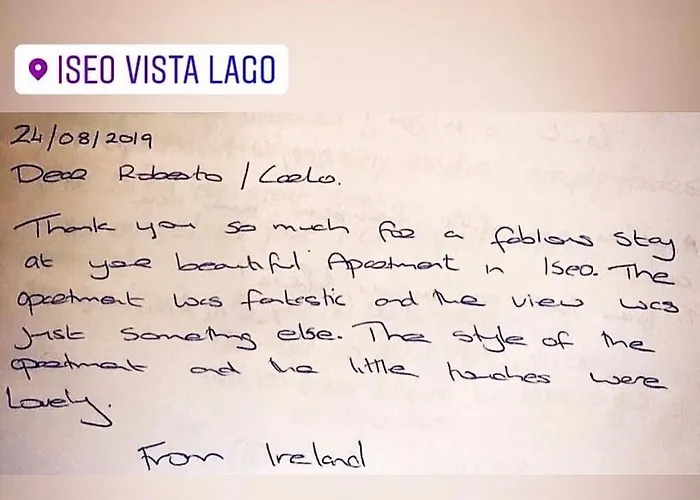 ISEO VISTA LAGO
24/08/2019
Dear Roberto / Carlo.
Thank you so much for a fablous stay
at your beautiful Apartment in Iseo. The
apartment was fantastic and the view was
just something else. The style of the
apartment and the little touches were
Lovely.
From Ireland